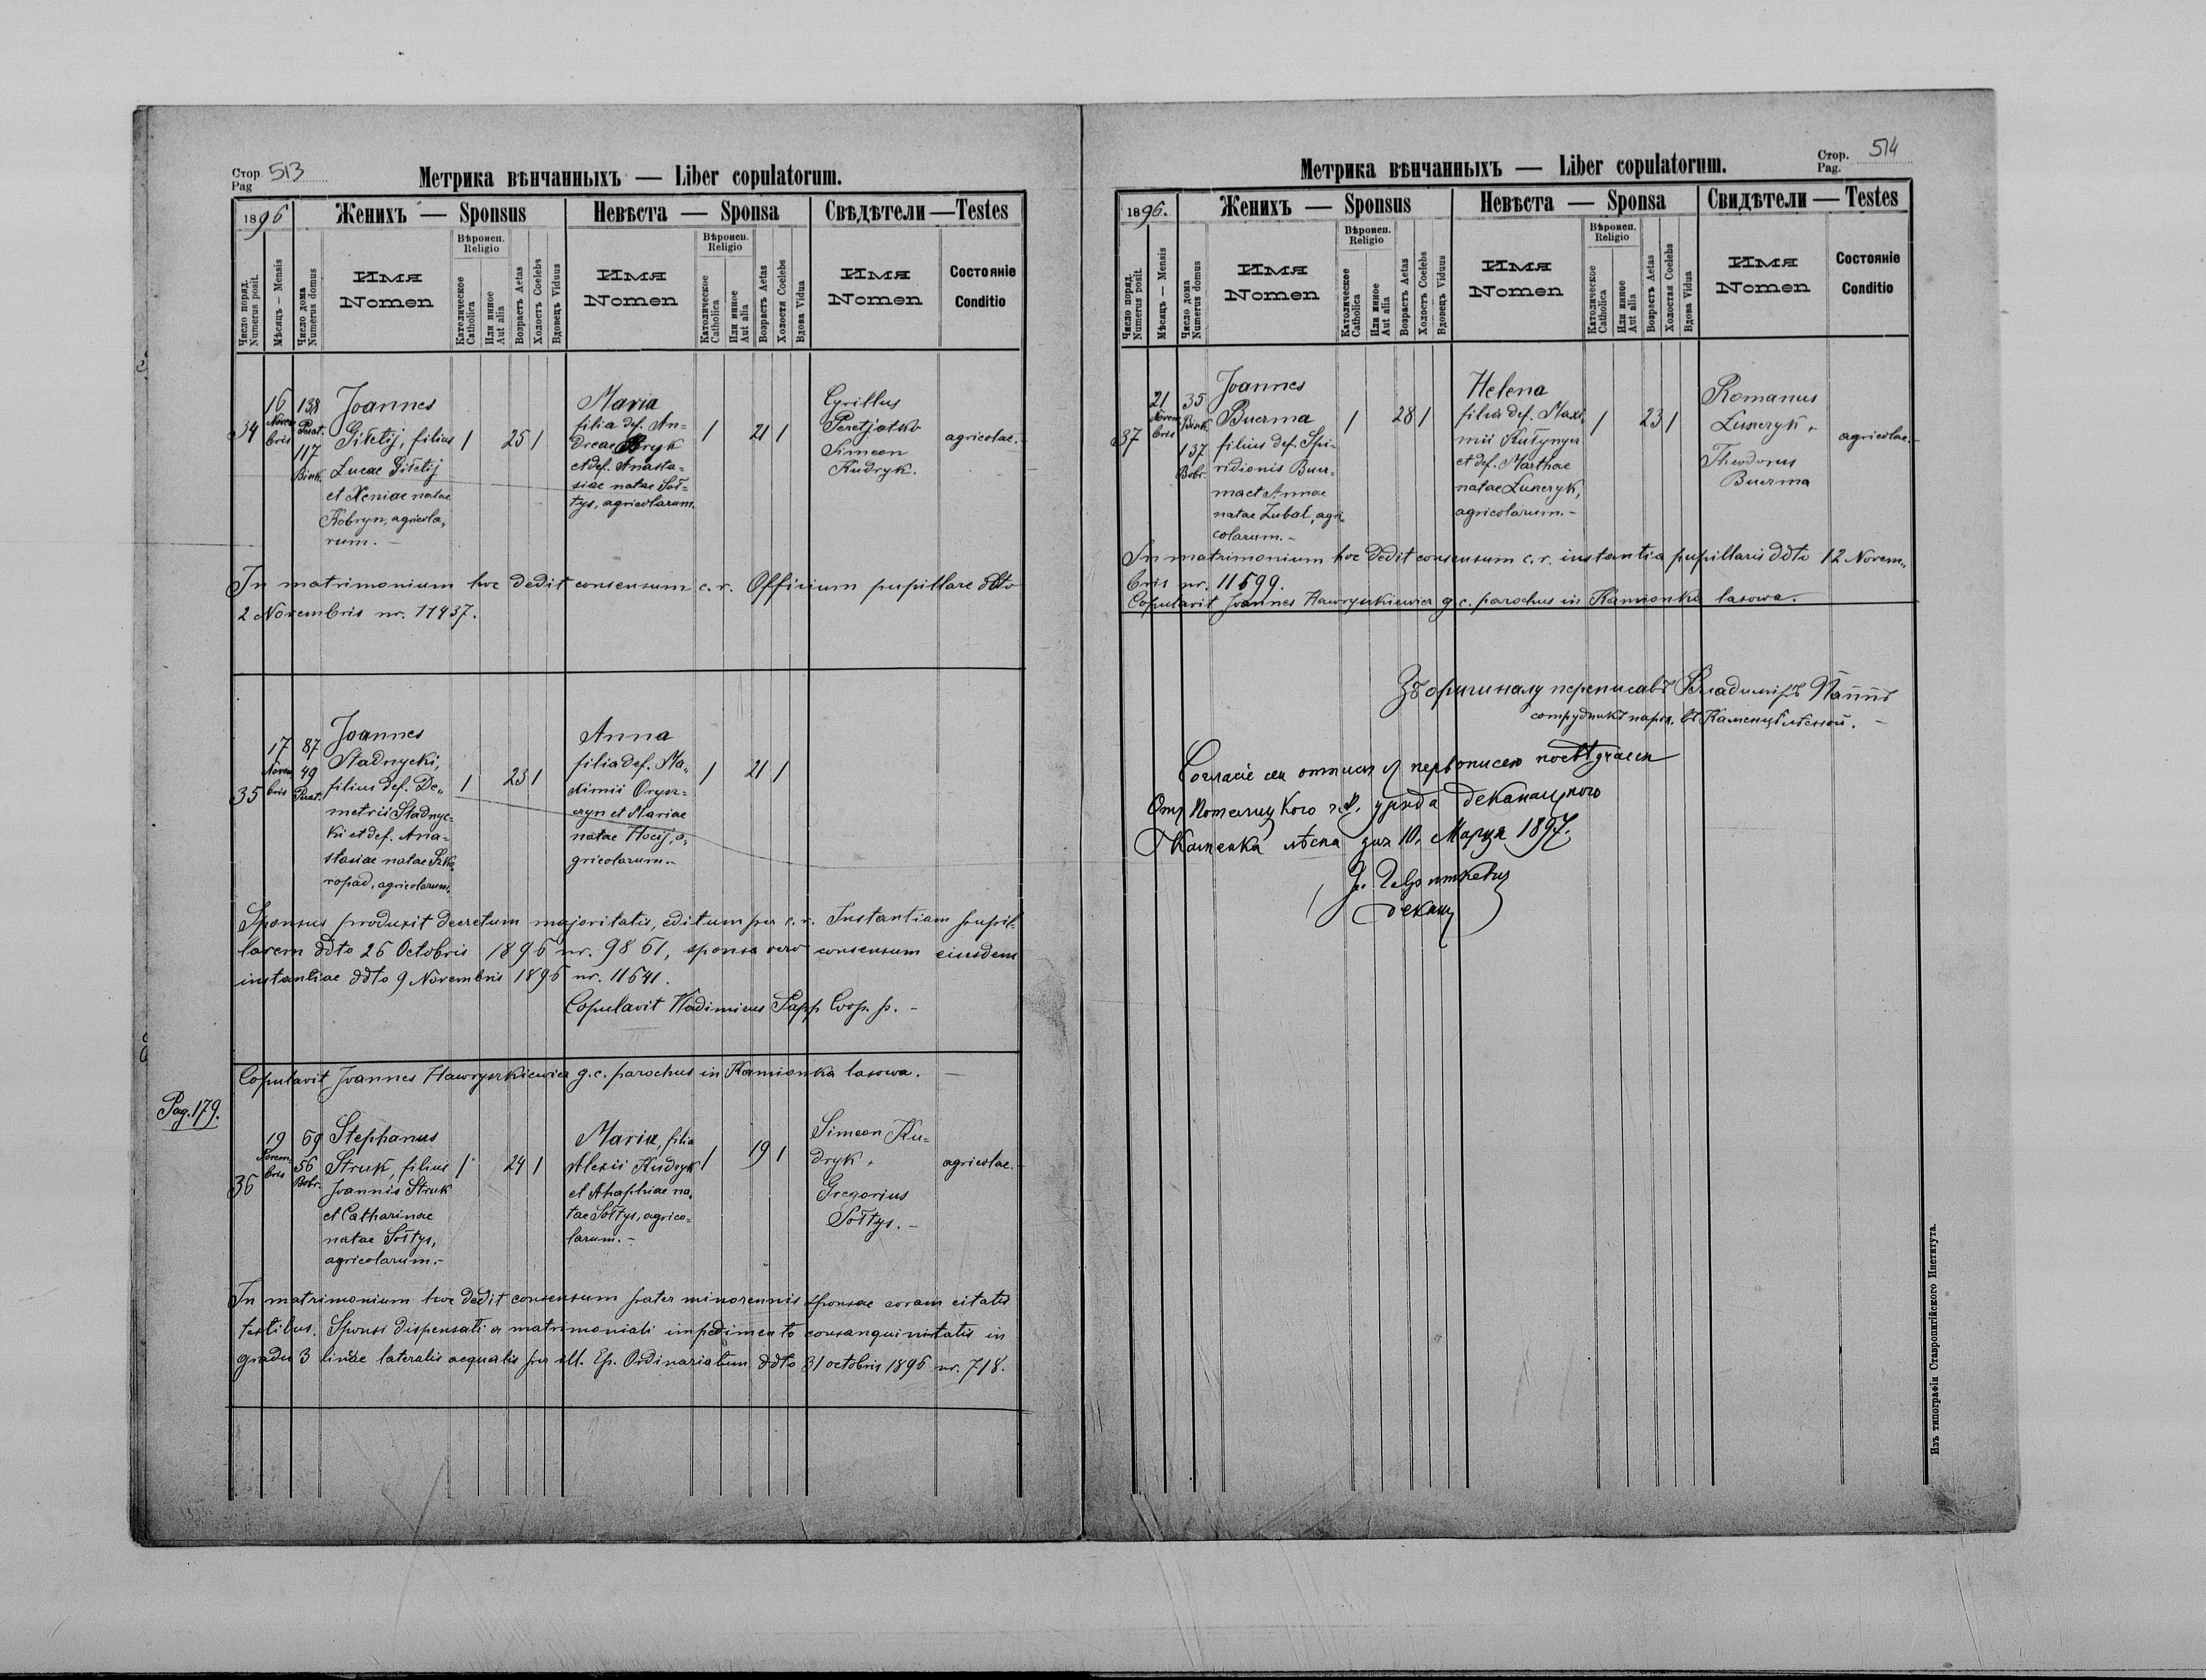 Стор. Pag 513
Метрика вѣнчанныхъ — Liber copulatorum.
1896
Женихъ — Sponsus
Невѣста — Sponsa
Свѣдѣтели — Testes
Число поряд. Numerus posit.
Мѣсяцъ — Mensis
Число дома Numerus domus
Имя Nomen
Вѣроисп. Religio
Католическое Catholica
Или инное Aut alia
Возрастъ Aetas
Холостъ Coelebs
Вдовецъ Viduus
Имя Nomen
Вѣроисп. Religio
Католическое Catholica
Или инное Aut alia
Возрастъ Aetas
Холостя Coelebs
Вдова Vidua
Имя Nomen
Состояніе Conditio
34
16 Novembris
138 Perat.
117 Bink.
Joannes
Giłetij, filius
Lucae Giłetij
et Xeniae natae
Kobryn, agricola„
rum. –
1 25 1
Maria
filia def. An-
dreae Bryk
et def. Anasta-
siae natae Soł-
tys, agricolarum.
1 21 1
Cyrillus
Peretjatko
Simeon
Kudryk.
agricolae.-
In matrimonium hoc dedit consensum c. r. Officium pupillare ddto
2 Novembris nr. 11437.
35
17 Novembris
87
49
Perat.
Joannes
Stadnycki,
filius def. De„
metrii Stadnyc-
ki et def. Ana-
stasiae natae Szko„
ropad, agricolarum.
1 23 1
Anna
filia def. Ma„
ximii Orysz-
czyn et Mariae
natae Hocij, a„
gricolarum.-
1 21 1
Sponsus produxit decretum majoritatis, editum per c. r. Instantiam pupil-
larem ddto 26 Octobris 1896 nr. 9861, sponsa vero consensum eiusdem
instantiae ddto 9 Novembris 1896 nr. 11541.
Copulavit Wladimirus Papp Coop. p. –
Copulavit Joannes Hawryszkiewicz g. c. parochus in Kamionka lasowa. —
Pag. 179.
36
19 Novembris
69
56
Bobr.
Stephanus
Struk, filius
Joannis Struk
et Catharinae
natae Sołtys,
agricolarum.-
1 24 1
Maria, filia
Alexii Kudryk
et Ahaphiae na„
tae Sołtys, agrico-
larum.-
1 19 1
Simeon Ku-
dryk,
Gregorius
Sołtys. –
agricolae.-
In matrimonium hoc dedit consensum pater minorennis sponsae coram citatis
testibus. Sponsi dispensati a matrimoniali impedimento consanquinitatis in
gradu 3 lineae lateralis aequalis per Ill. Ep. Ordinariatum ddto 31 octobris 1896 nr. 718.
Стор. Pag. 514
Метрика вѣнчанныхъ — Liber copulatorum.
1896.
Женихъ — Sponsus
Невѣста — Sponsa
Свидѣтели — Testes
Число поряд. Numerus posit.
Мѣсяцъ — Mensis
Число дома Numerus domus
Имя Nomen
Вѣроисп. Religio
Католическое Catholica
Или инное Aut alia
Возрастъ Aetas
Холостъ Coelebs
Вдовецъ Viduus
Имя Nomen
Вѣроисп. Religio
Католическое Catholica
Или инное Aut alia
Возрастъ Aetas
Холостая Coelebs
Вдова Vidua
Имя Nomen
Состояніе Conditio
37
21 Novembris
35 Bink.
137 Bobr.
Joannes
Buczma
filius def. Spi-
ridionis Bucz-
ma et Annae
natae Zubal, agri„
colarum.-
1 28 1
Helena
filia def. Maxi„
mii Kułynycz
et def. Marthae
natae Lunczyk,
agricolarum.-
1 23 1
Romanus
Lunczyk,
Theodorus
Buczma
agricolae.-
In matrimonium hoc dedit consensum c. r. instantia pupillaris ddto 12 Novem„
bris nr. 11599.
Copulavit Joannes Hawryszkiewicz g. c. parochus in Kamionka lasowa.
Зъ оригиналу переписавъ Владиміръ Паппъ
сотрудникъ парох. въ Каменцѣ лѣсной. –
Согласіе сеи отписи съ первописею
Отъ Потелицкого уряда деканацкого
Каменка лѣсна дня 10. Марца 1897.
деканъ
Изъ типографіи Ставропигійского Института.